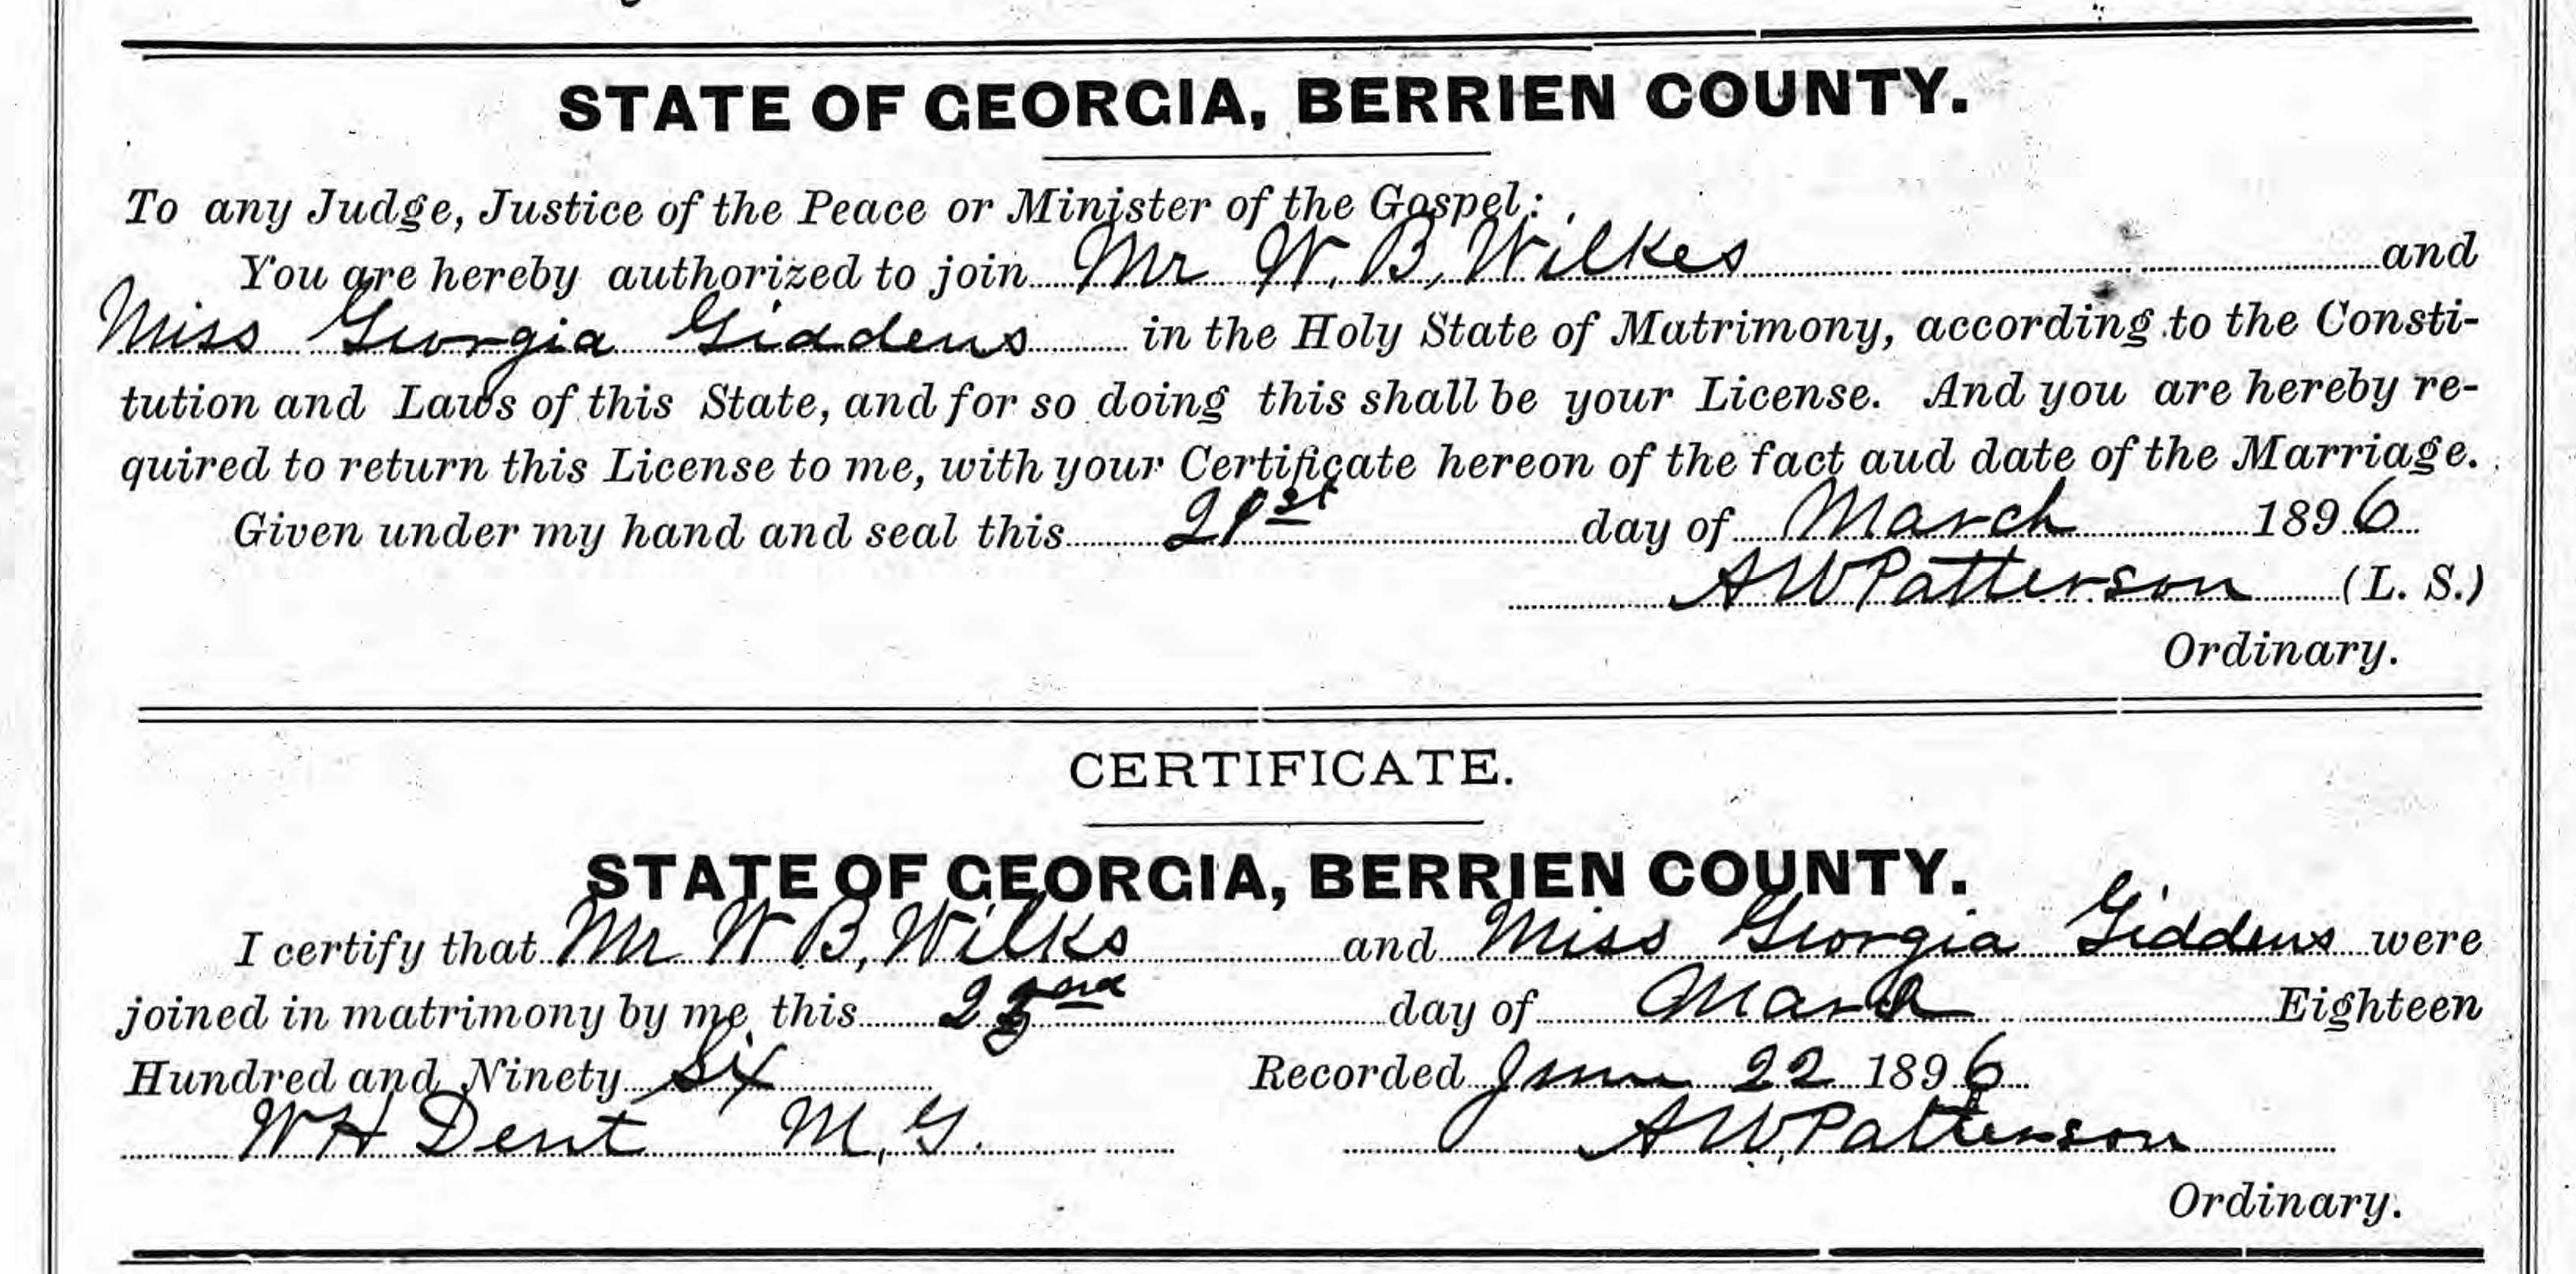 STATE OF GEORGIA, BERRIEN COUNTY.
To any Judge, Justice of the Peace or Minister of the Gospel:
You are hereby authorized to join Mr W. B. Wilkes and
Miss Georgia Giddens in the Holy State of Matrimony, according to the Consti-
tution and Laws of this State, and for so doing this shall be your License. And you are hereby re-
quired to return this License to me, with your Certificate hereon of the fact aud date of the Marriage.
Given under my hand and seal this 21st day of March 1896
A W Patterson (L. S.)
Ordinary.
CERTIFICATE.
STATE OF GEORGIA, BERRIEN COUNTY.
I certify that Mr W B, Wilks and Miss Georgia Giddens were
joined in matrimony by me this day of March Eighteen
Hundred and Ninety Six Recorded June 22 1896
W H Dent M, G. A W, Patterson
Ordinary.